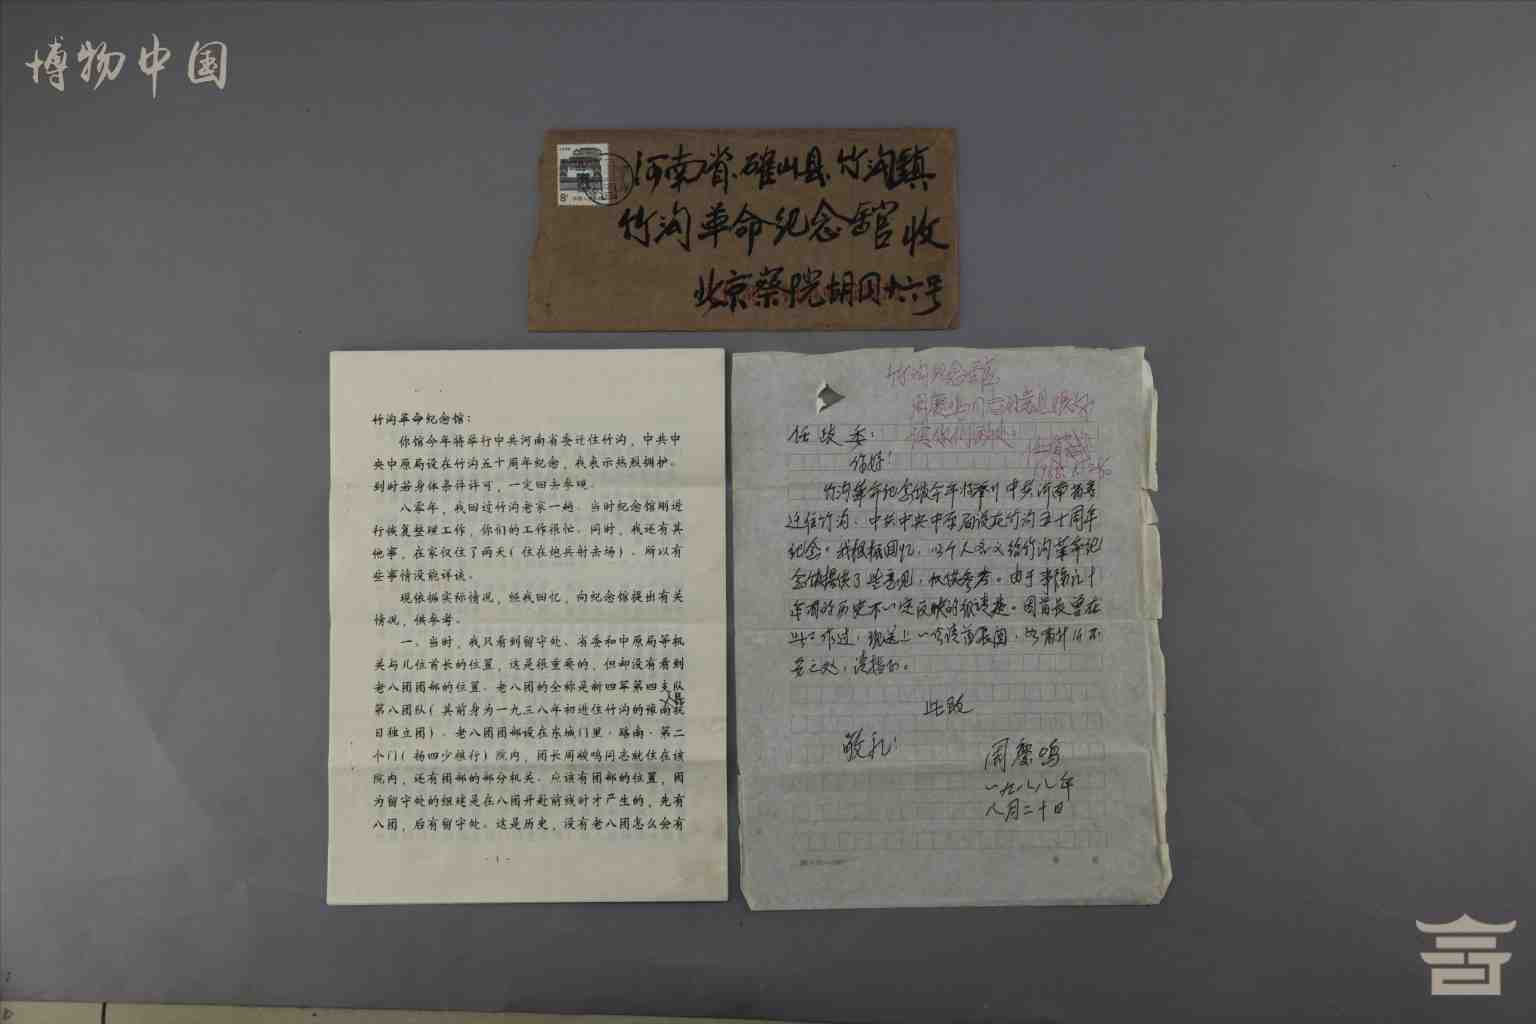 博物中国
8分
河南省确山县竹沟镇
竹沟革命纪念馆收
北京
竹沟革命纪念馆：
你馆今年将举行中共河南省委迁住竹沟，中共中
央中原局设在竹沟五十周年纪念，我表示热烈拥护。
到时若身体条件许可，一定回去参观。
八零年，我回过竹沟老家一趟。当时纪念馆刚进
行恢复整理工作，你们的工作很忙。同时，我还有其
他事，在家仅住了两天（住在炮兵射击场）。所以有
些事情没能详谈。
现依据实际情况，经我回忆，向纪念馆提出有关
情况，供参考。
一、当时，我只看到留守处、省委和中原局等机
关与几位首长的位置，这是很重要的，但却没有看到
老八团团部的位置。老八团的全称是新四军第四支队
第八团队（其前身为一九三八年初进住竹沟的豫南
人民
日独立团）。老八团团部设在东城门里·路南·第二
个门（杨四少粮行）院内，团长周骏鸣同志就住在该
院内，还有团部的部分机关。应该有团部的位置，因
为留守处的组建是在八团开赴前线时才产生的，先有
八团，后有留守处。这是历史，没有老八团怎么会有
·1·
竹沟纪念馆
请你们
任政委：
你好！
竹沟革命纪念馆今年将举行中共河南省委
迁住竹沟、中共中央中原局设在竹沟五十周年
纪念。我根据回忆，以个人名义给竹沟革命纪
念馆提供了些意见，仅供参考。由于事隔几十
年有的历史不一定反映的很清楚。因首长曾在
此工作过，现送上一份请首长阅，
妥之处，请指示。
此致
敬礼！
周庆鸣
一九八八年
八月二十日